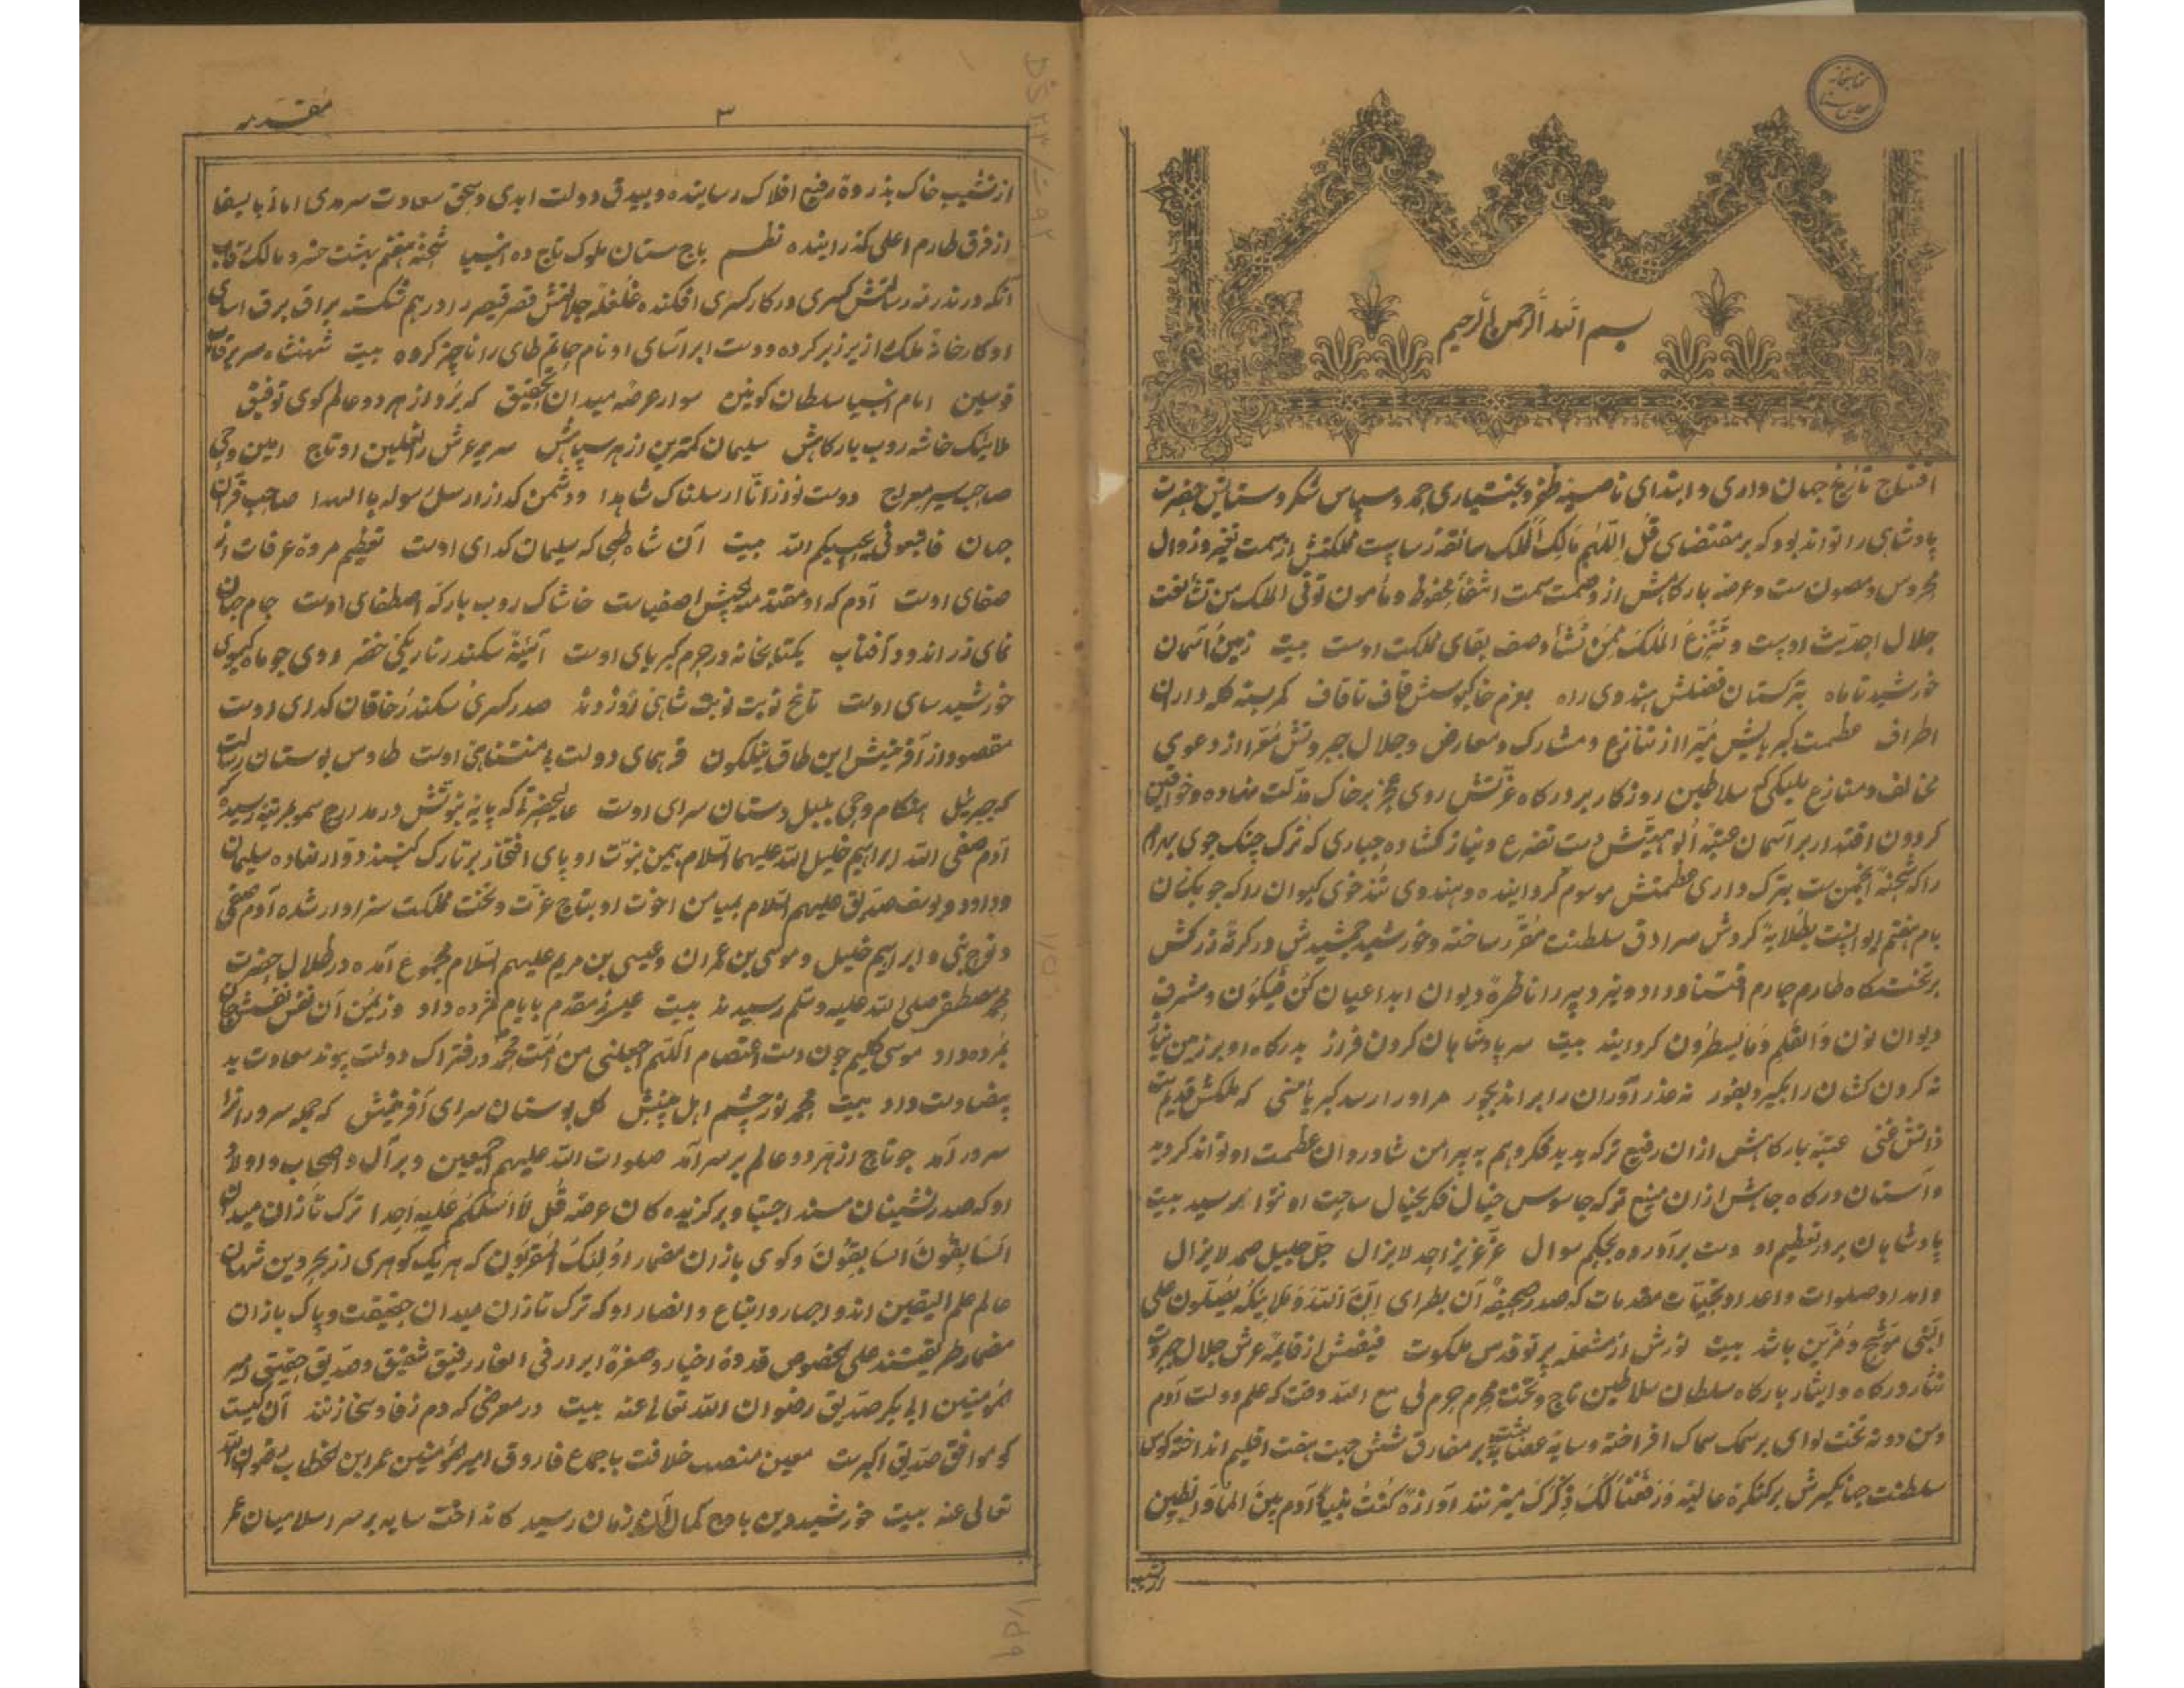 بسم الله الرحمن الرحیم
افتتاح تاریخ جهان داری و ابتدای ظفر و بختیاری حمد و سپاس شکر و ستایش حضرت
پادشاهی را تواند بود که بر مقتضای قُل اللّٰهُمَّ مَالِکَ الْمُلْکِ مملکتش از سمت تغیر و زوال
محروس و مصون ست و عرصه بارگاهش از وصمت سمت انتقال محفوظ و مأمون تؤتی الملک من تشاء نعت
جلال احدیت اوست و تَنْزِعُ الْمُلْکَ مِمَّنْ تَشَاءُ وصف بقای مملکت اوست بیت زمین آسمان
خورشید تا ماه بترکستان فضلش هندوی راه بعزم خاکبوسش قاف تا قاف کمر بسته کله داران
اطراف عظمت کبریایش مبّرا از تنازع و مشارک و معارض و جلال جبروتش مُعّرا از دعوی
مخالف و منازع ملیکی که سلاطین روزکار بر درکاه عزّتش روی عجز بر خاک مذلّت نهاده و خواقین
کردون اقتدار بر آسمان عتبهٔ الوهیتش دست تضرع و نیاز کشاده جباری که ترک جنک جوی بهرام
را که شحنهٔ انجمن ست بترک داری عظمتش موسوم کردانیده و هندوی تندخوی کیوان را که چوبک زن
بام هفتم ایوانست بطلایهٔ کردش سرادق سلطنت مقرّر ساخته و خورشید جمشیدش در کرتهٔ زرکش
بر تختگاه طارم چارم و تیر دبیر را ناظرهٔ دیوان ابداعیان کُن فَیَکُون و مشرف
دیوان نون وَالقلمِ وَمَا یَسطُرُون کردانید بیت سر پادشاهان کردن فراز بدرکاه او بر زمین نیاز
نه کردن کشان را بگیرد بفور نه عذر آوران را براند بجور مر او را رسد کبریا و منی که ملکش قدیم ست
ذاتش غنی عتبهٔ بارکاهش ازان رفیع تر که پدید فکر و هم به پیرامن شادروان عظمت او تواند کردید
و آستان درکاه جاهش ازان منیع تر که جاسوس خیال فکر بخیال ساحت او تواند رسید بیت
پادشاهان بر در تعظیم او دست برآورده بحکم سوال عزّ عزیز احد لایزال جلّ جلیل صمد لایزال
و امداد صلوات و اعداد تحیّات مقدمات که صدر صحیفهٔ آن بطرای اِنَّ اللّٰهَ وَمَلَایِکَتَهُ یُصَلّونَ علی
النّبی موشّح و مُزیّن باشد بیت نورش از مشعله پرتو قدس ملکوت فیضش از قایمهٔ عرش جلال جبروت
نثار درکاه و ایثار بارکاه سلطان سلاطین تاج و تخت محرم حرم لی مع الله وقت که علم دولت آدم
و من دونه تحت لوای بر سمک سماک افراخته و سایهٔ بر مفارق شش جهت هفت اقلیم انداخته کوس
سلطنت جهانگیرش بر کنگرهٔ عالیهٔ وَرَفَعْنَا لَکَ ذِکْرَکَ میزنند آوازهٔ کُنْتُ نَبِیّاً و آدم بَینَ المَاءِ وَالطِّین
مقدمه
۳
از نشیب خاک بذروهٔ رفیع افلاک رسانیده و بیدق دولت ابدی و سنجق سعادت سرمدی
از فرق طارم اعلی گذرانیده نظم باج ستان ملوک تاج ده انبیا
آنکه دبدبه رسالتش کسری در کار کسری افکنده غلغلهٔ جلالتش قصر قیصر را در هم شکسته براق برق آسای
او کارخانهٔ ملک از زیر زبر کرده و دست ابر آسای او نام حاتم طای را ناچیز کرده بیت شهنشاه سریر قاب
قوسین امام انبیا سلطان کونین سوار عرصهٔ میدان تحقیق که بُرد از هر دو عالم کوی توفیق
ملایک خاشه روب بارکاهش سلیمان کمترین از هر سپاهش سریر عرش را نعلین او تاج امین وحی
صاحب سر معراج دوست نواز انّا ارسلناک شاهدا و دشمن کداز ارسل رسوله بالهدا صاحب قران
جهان فاتبعونی یحببکم الله بیت آن شاه که سلیمان کدای اوست تعظیم مروه عرفات از
صفای اوست آدم که او مقدمه جیش اصفیاست خاشاک روب بارکه اصطفای اوست جام جهان
نمای زر اندود آفتاب یکتابخانه در حرم کبریای اوست آئینهٔ سکندر تاریکی خضر روی چو ماه کیسوی
خورشید سای اوست صدر کسری سکندر و خاقان کدای اوست
مقصود از آفرینش این طاق نیلکون فر همای دولت بی منتهای اوست طاوس بوستان
که جبرئیل هنکام وحی بلبل دستان سرای اوست عالیحضرتی که پایهٔ نبوّتش در مدارج سمو بمرتبهٔ رسیده که
آدم صفی الله ابراهیم خلیل الله علیهما السّلام بیمن نبوّت او پای افتخار بر تارک کنبند دوّار نهاده سلیمان
و داود و یوسف صدیق علیهم السّلام بمیامن اخوت او بتاج عزت و تخت مملکت سزاوار شده آدم صفی
و نوح نجی و ابراهیم خلیل و موسی بن عمران و عیسی بن مریم علیهم السّلام مجموع آمده در ظلال حضرت
محمد مصطفی صلی الله علیه و سلم رسیدند بیت عیسی ز مقدم بایام مژده داد وز یُمن آن نفس نفسش جان
بمرده داد موسی کلیم چون دست اعتصام اللّهم اجعلنی من امّت محمّد در فتراک دولت پیوند سعادت ید
بیضا دست داد بیت محمد نور چشم اهل بینش کل بوستان سرای آفرینش که جمله سرورانرا
سرور آمد چو تاج از هر دو عالم بر سر آمد صلوات الله علیهم اجمعین و بر آل و اصحاب و اولاد
او که صدرنشینان مسند اجتبا و برکزیده کان عرصهٔ قُل لَا اَسْئَلُکُمْ عَلَیْهِ اَجرا ترک تازان میدان
السَابِقُونَ السَابِقُونَ و کوی بازان مضمار اُولئِکَ المُقرّبُون که هر یک کوهری از بحر دین
عالم علم الیقین اند و احبار و اتباع و انصار او که ترک تازان میدان حقیقت و پاک بازان
مضمار طریقتند علی الخصوص قدوهٔ اخیار و صفوهٔ ابرار فی الغار رفیق شفیق و صدیق حقیقی امیر
المؤمنین ابی بکر صدیق رضوان الله تعالی عنه بیت در معرضی که دم ز وفا و سخا زنند آن کیست
کو موافق صدیق اکبرست معین منصب خلافت باجماع فاروق امیر المؤمنین عمر ابن الخطاب رضوان الله
تعالی عنه بیت خورشید دین باوج کمال آن زمان رسید کانداخت سایه بر سر اسلامیان عمر